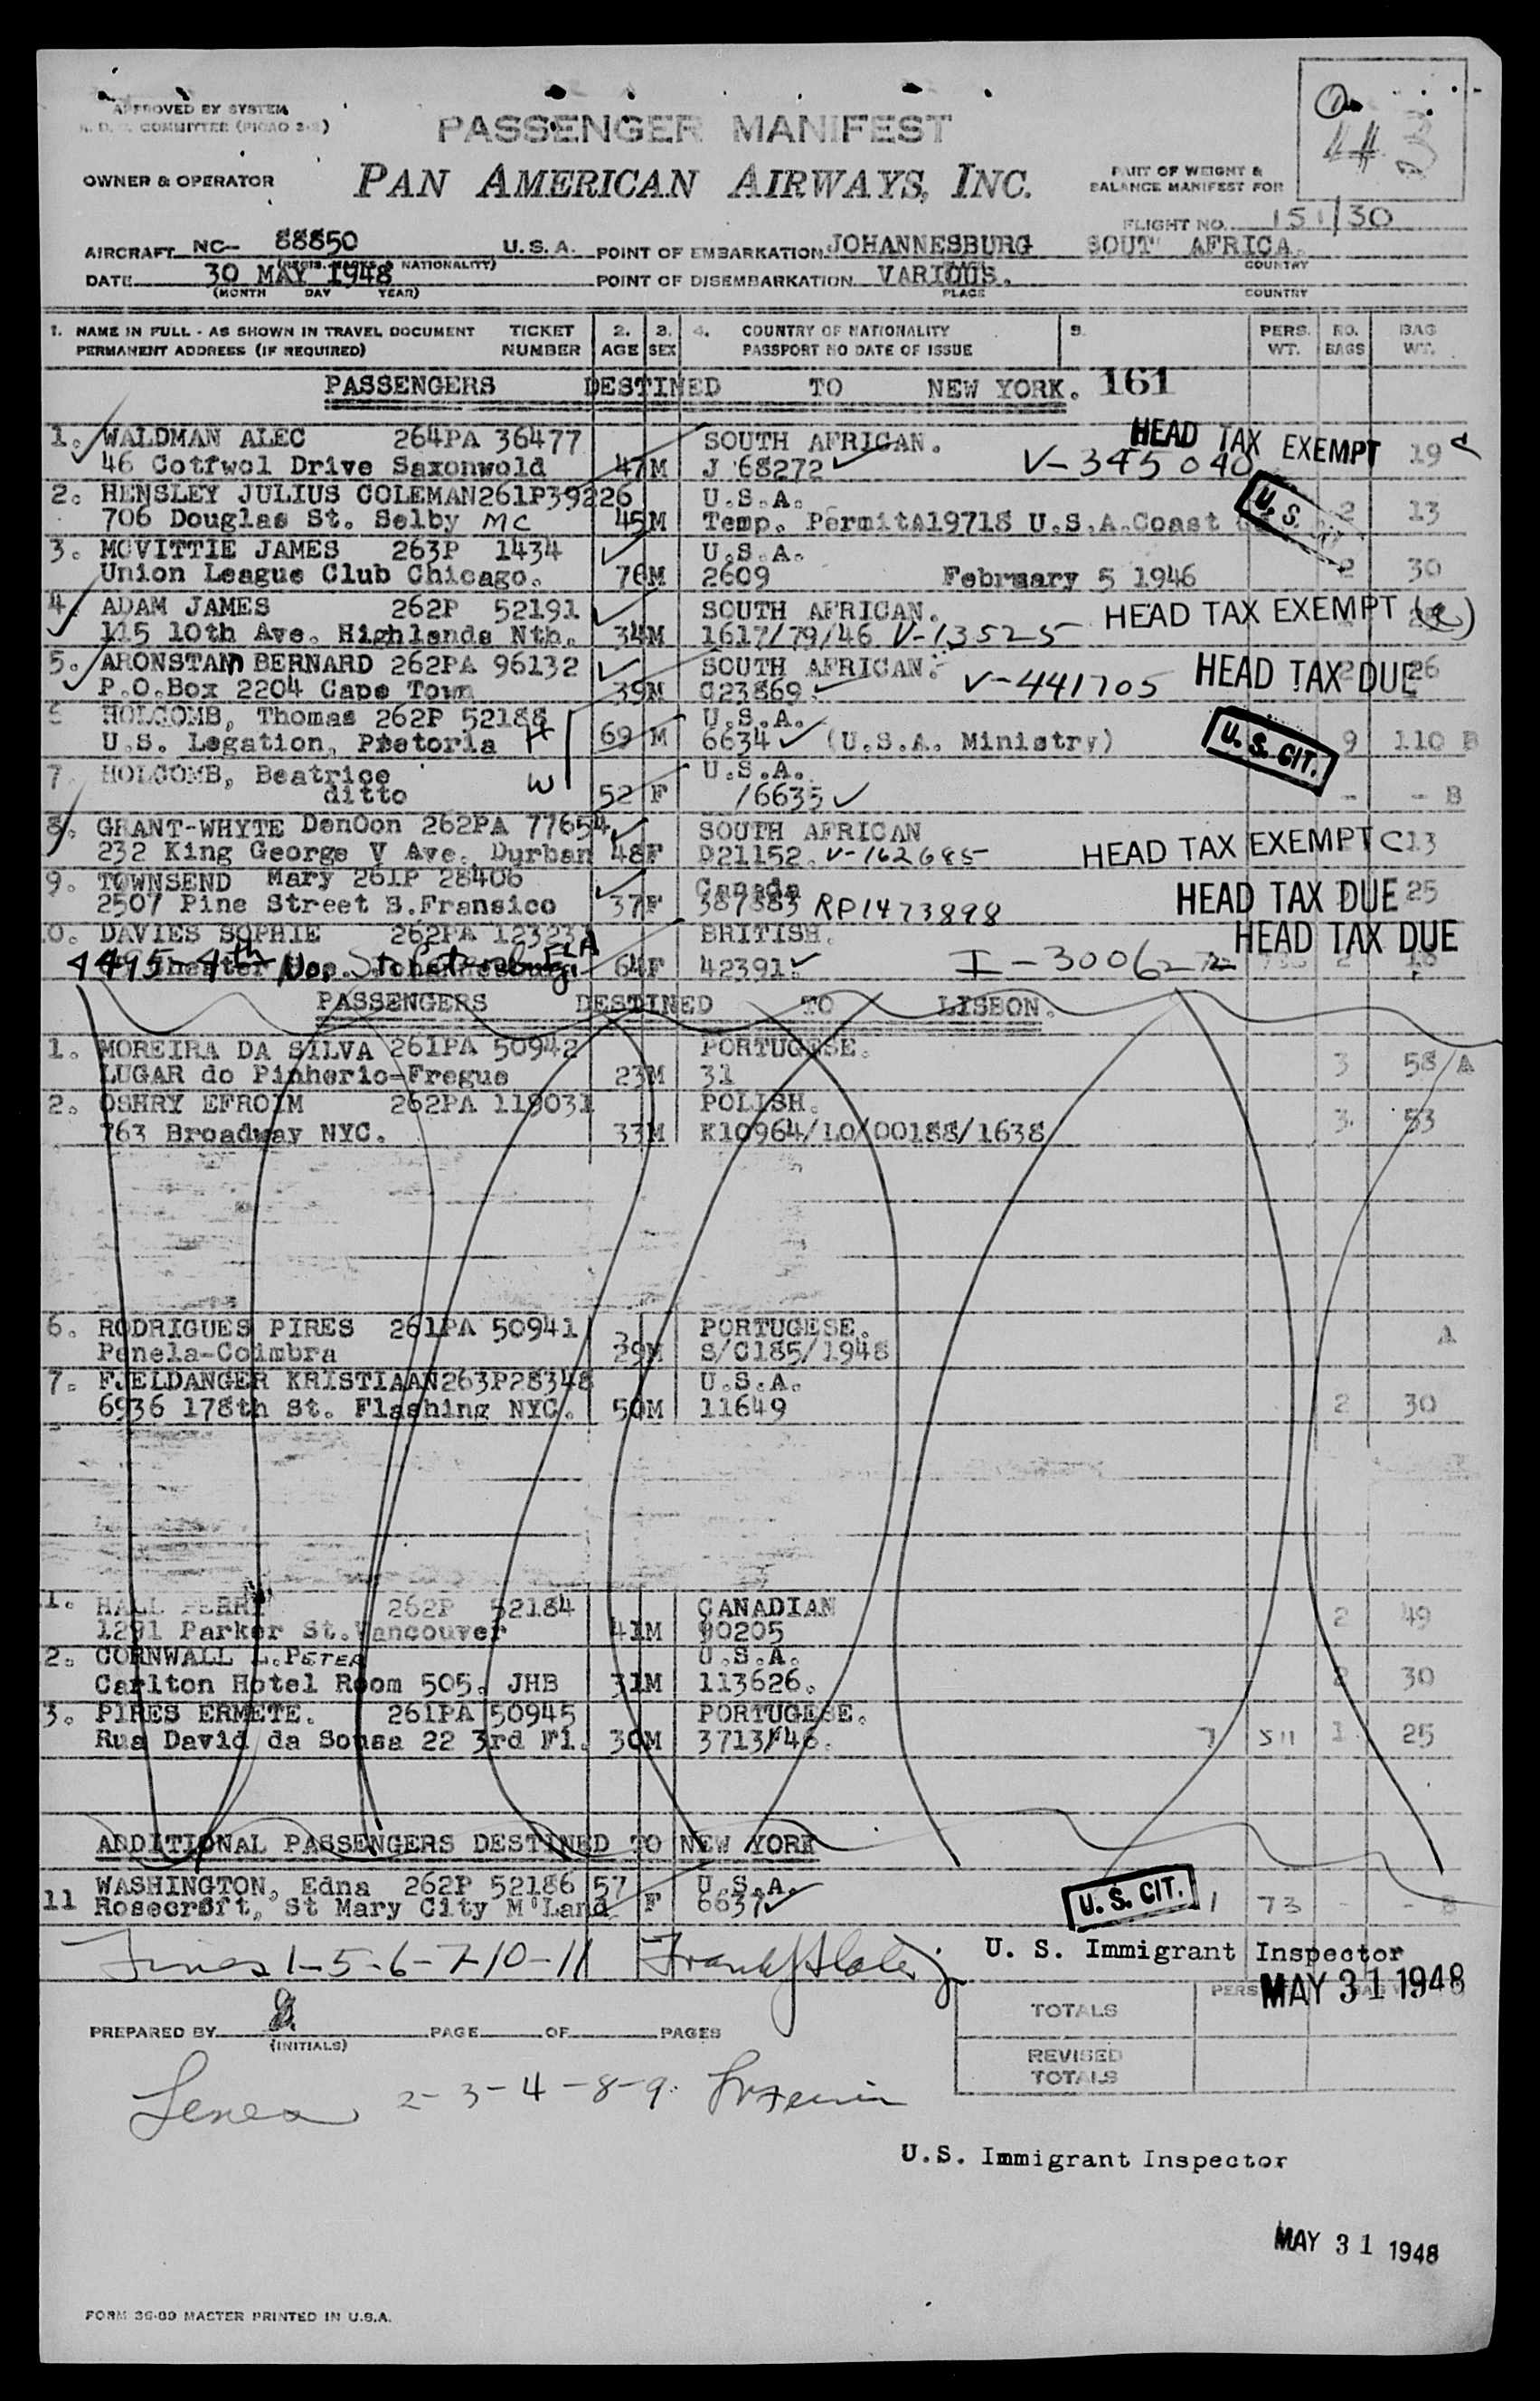 APPROVED BY SYSTEM
COMMITTEE (PICAO 2-2)
PASSENGER MANIFEST
OWNER & OPERATOR
PAN AMERICAN AIRWAYS, INC.
PART OF WEIGHT &
BALANCE MANIFEST FOR
FLIGHT NO. 151/30
AIRCRAFT NC- 88850 U.S.A. POINT OF EMBARKATION JOHANNESBURG SOUT AFRICA.
NATIONALITY) COUNTRY
DATE 30 MAY 1948 POINT OF DISEMBARKATION VARIOUS.
(MONTH DAY YEAR) PLACE COUNTRY
1. NAME IN FULL - AS SHOWN IN TRAVEL DOCUMENT TICKET 2. 3. 4. COUNTRY OF NATIONALITY 5. PERS. NO. BAG
PERMANENT ADDRESS (IF REQUIRED) NUMBER AGE SEX PASSPORT NO DATE OF ISSUE WT. BAGS WT.
PASSENGERS DESTINED TO NEW YORK. 161
1. WALDMAN ALEC 264PA 36477 SOUTH AFRICAN. HEAD TAX EXEMPT 19 C
46 Cotfwol Drive Saxonwold 47 M J 68272 V-345040
2. HENSLEY JULIUS COLEMAN 261P39226 U.S.A. U.S. 2 13
706 Douglas St. Selby MC 45 M Temp. Permit A19718 U.S.A. Coast
3. MCVITTIE JAMES 263P 1434 U.S.A.
Union League Club Chicago. 76 M 2609 February 5 1946 2 30
4. ADAM JAMES 262P 52191 SOUTH AFRICAN. HEAD TAX EXEMPT
115 10th Ave. Highlands Nth. 34 M 1617/79/46 V-13525
5. ARONSTAM BERNARD 262PA 96132 SOUTH AFRICAN. HEAD TAX DUE 2 26
P.O.Box 2204 Cape Town 39 M C23869. V-441705
HOLCOMB, Thomas 262P 52188 U.S.A.
U.S. Legation, Pretoria H 69 M 6634 (U.S.A. Ministry) U.S. CIT. 9 110 B
7. HOLCOMB, Beatrice W U.S.A.
ditto 52 F 6635 - - B
8. GRANT-WHYTE DenOon 262PA 77654 SOUTH AFRICAN
232 King George V Ave. Durban 48 F D21152. V-162685 HEAD TAX EXEMPT C 13
9. TOWNSEND Mary 261P 28406 Canada HEAD TAX DUE 25
2507 Pine Street S.Fransico 37 F 387383 RP1473898
0. DAVIES SOPHIE 262PA 123231 BRITISH. HEAD TAX DUE
4495-4th No. St. Petersburg FLA 64 F 42391. I-300622 2 18
PASSENGERS DESTINED TO LISBON.
1. MOREIRA DA SILVA 261PA 50942 PORTUGESE.
LUGAR do Pinherio-Fregus 23 M 31 3 58 A
2. OSHRY EFROIM 262PA 119031 POLISH.
763 Broadway NYC. 33 M K10964/10/00188/1638 3. 53
6. RODRIGUES PIRES 261PA 50941 PORTUGESE. A
Penela-Coimbra 29 M S/C185/1948
7. FJELDANGER KRISTIAAN 263P28348 U.S.A.
6936 178th St. Flashing NYC. 50 M 11649 2 30
1. HALL PERRY 262P 52184 CANADIAN 2 49
1291 Parker St. Vancouver 41 M 90205
2. CORNWALL L. PETER U.S.A.
Carlton Hotel Room 505. JHB 31 M 113626. 2 30
3. PIRES ERMETE. 261PA 50945 PORTUGESE.
Rua David da Sousa 22 3rd Fl. 30 M 3713/46. 7 511 1 25
ADDITIONAL PASSENGERS DESTINED TO NEW YORK
WASHINGTON, Edna 262P 52186 57 U.S.A.
11 Rosecroft, St Mary City M'Land F 6637 U.S. CIT. 1 73 - - B
Lines 1-5-6-7-10-11 U. S. Immigrant Inspector
MAY 31 1948
TOTALS
PREPARED BY (INITIALS) PAGE OF PAGES
REVISED
TOTALS
Lines 2-3-4-8-9
U.S. Immigrant Inspector
MAY 31 1948
FORM 36-89 MASTER PRINTED IN U.S.A.